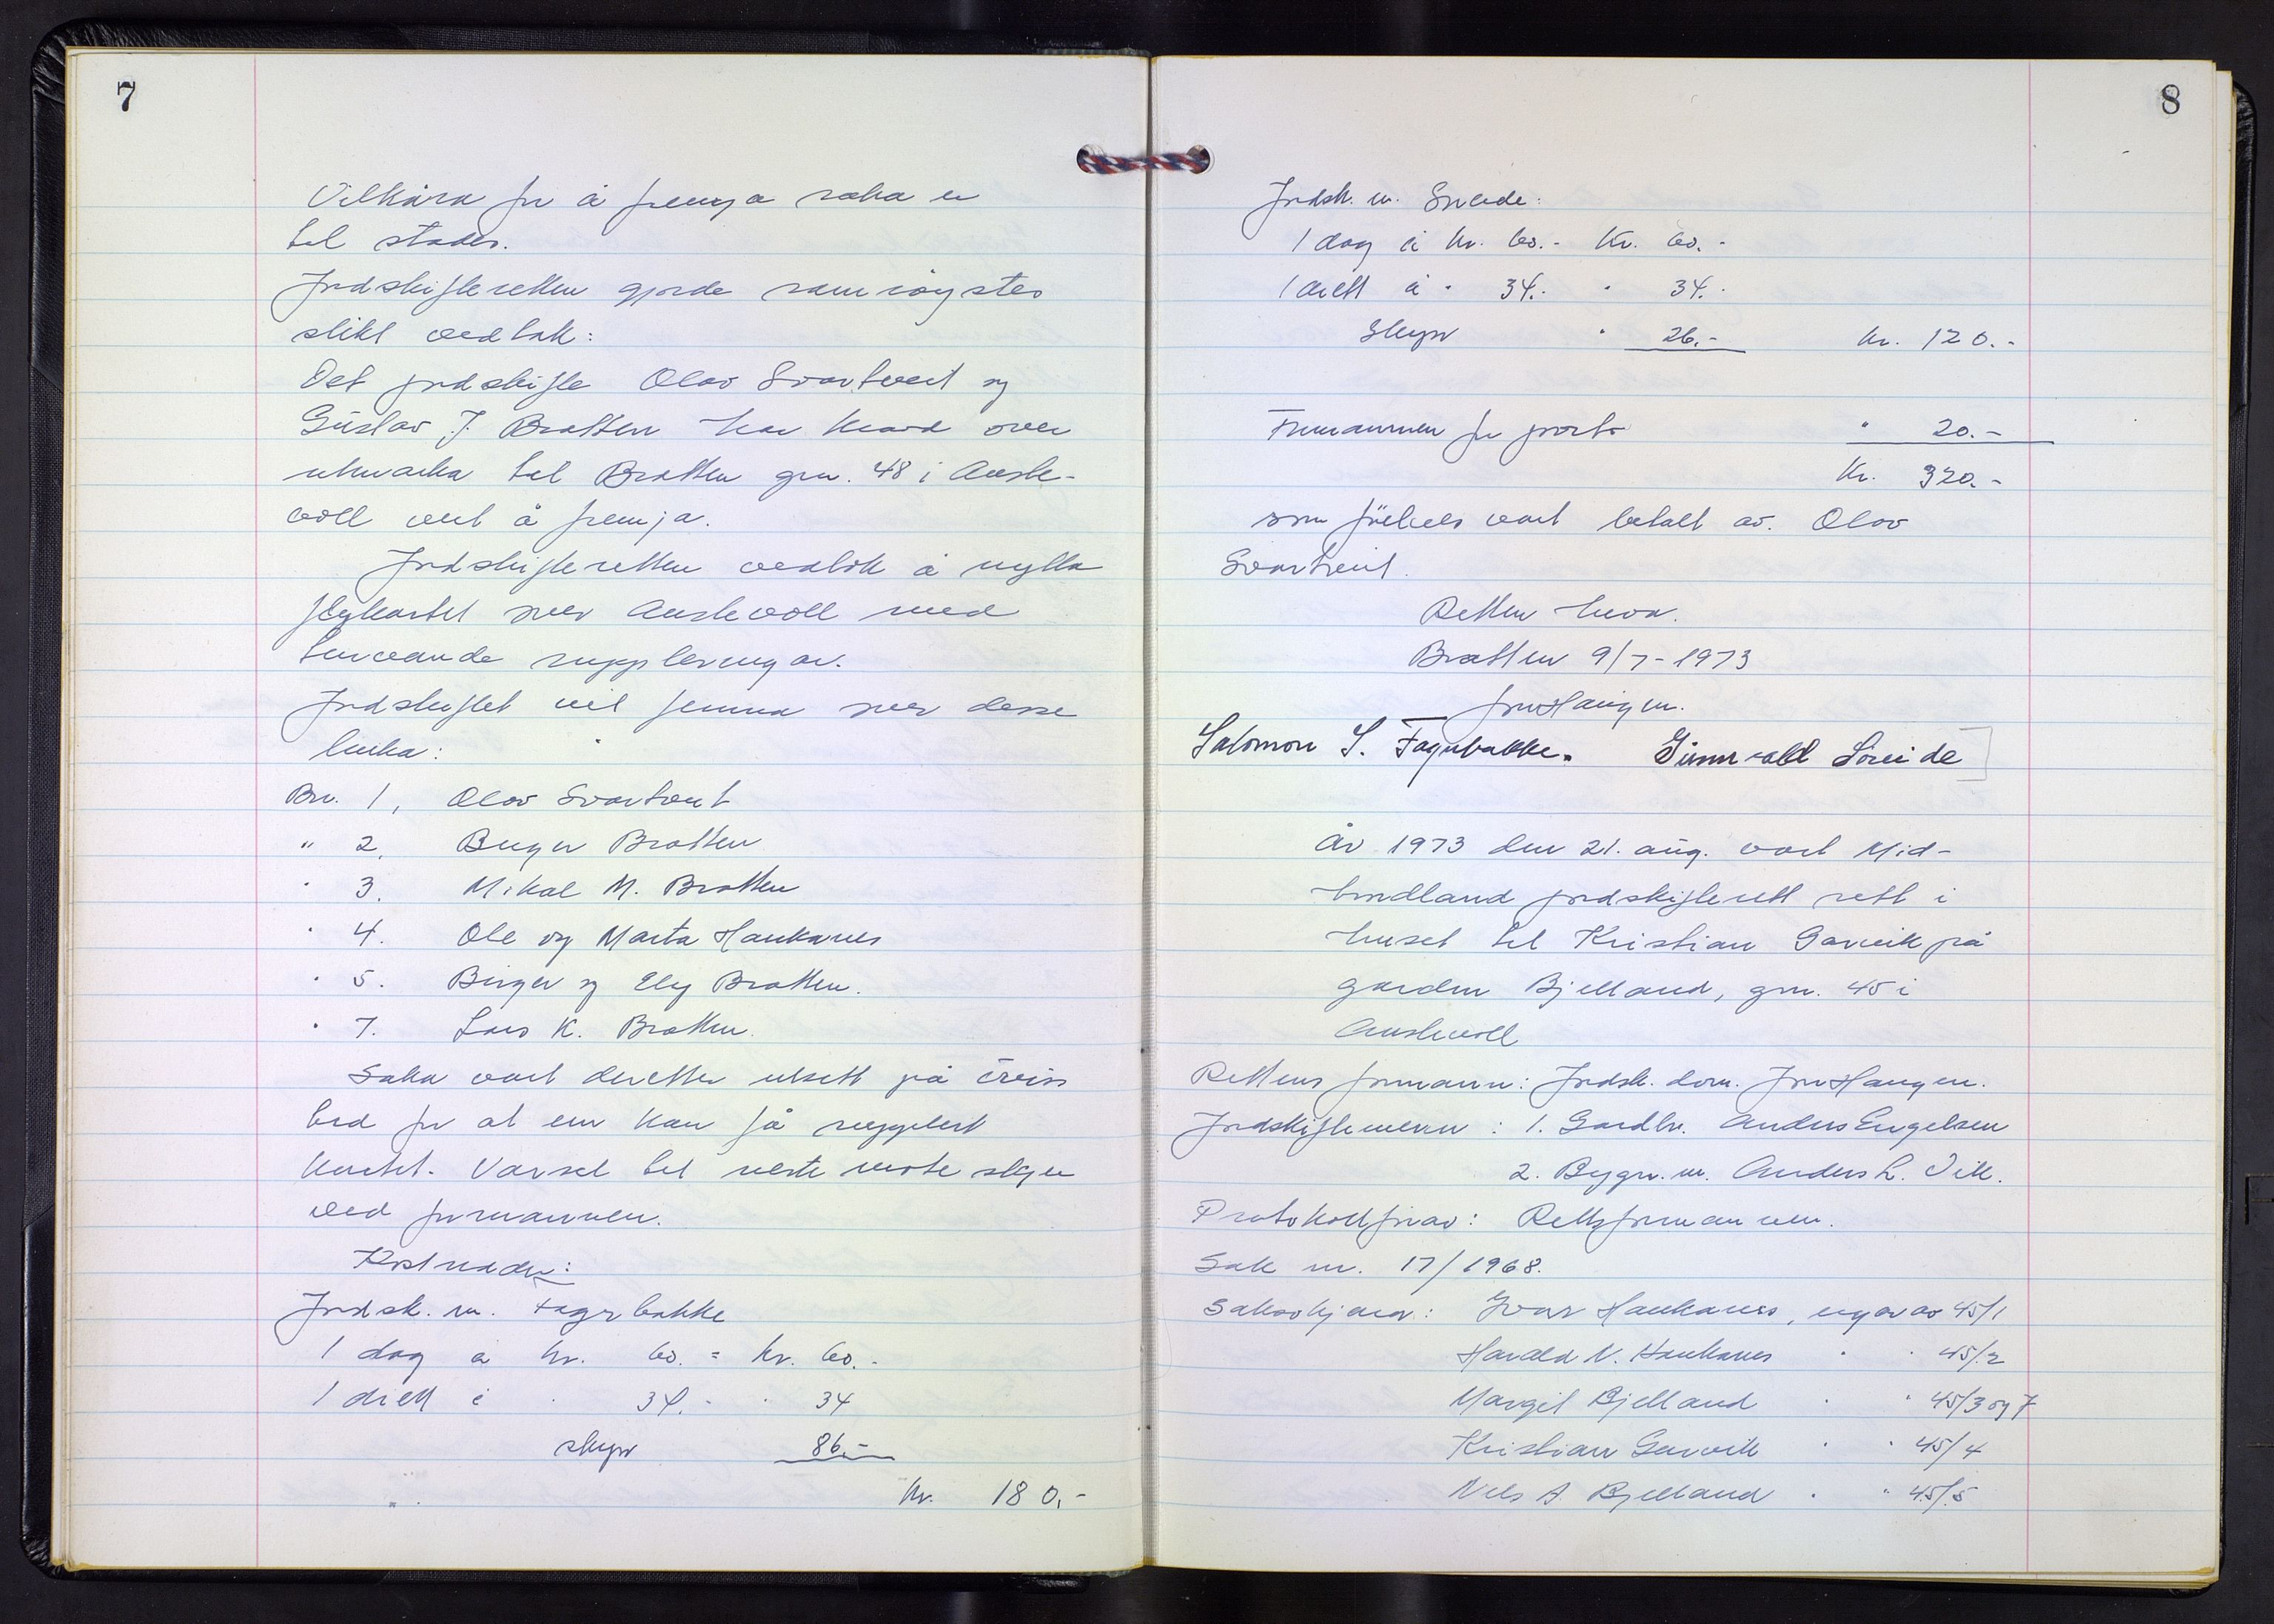 7
Vilkåra for å fremja saka er
til stades.
Jordskifteretten gjorde samrøystes
slikt vedtak:
Det jordskifte Olav Svartveit og
Gustav J. Bratten har kravd over
utmarka til Bratten gnr. 48 i Auste-
voll vert å fremja.
Jordskifteretten vedtok å nytta
flykartet over Austevoll med
turvande suppleringar.
Jordskiftet vil femna over desse
bruka:
Bnr. 1, Olav Svartveit
" 2. Birger Bratten
" 3. Mikal M. Bratten
" 4. Ole og Marta Haukanes
" 5. Birger og Elly Bratten.
" 7. Lars K. Bratten.
Saka vart deretter utsett på uviss
tid for at ein kan få supplert
kartet. Varsel til neste møte skjer
ved formannen.
Kostnader:
Jordsk. m. Fagerbakke
1 dag a kr. 60. = kr. 60.-
1 diett à " 34.- " 34
skyss 86.-
Kr. 180,-
8
Jordsk. m. Søreide:
1 dag à kr. 60.- Kr. 60.-
1 diett à " 34.- " 34.-
Skyss " 26.- Kr. 120.-
Formannen for porto " 20.-
Kr. 320.-
som førebels vart betalt av Olav
Svartveit.
Retten heva.
Bratten 9/7-1973
Jon Haugen.
Salomon S. Fagerbakke. Gunnvald Søreide
År 1973 den 21. aug. vart Mid-
hordland jordskifterett sett i
huset til Kristian Garvik på
garden Bjelland, gnr. 45 i
Austevoll
Rettens formann: Jordsk. dom. Jon Haugen.
Jordskiftemenn: 1. Gardbr. Anders Engelsen
2. Bygn. m. Anders L. Vik.
Protokollførar: Rettsformannen.
Sak nr. 17/1968.
Saksøkjarar: Ivar Haukanes, eigar av 45/1
Harald N. Haukanes " " 45/2
Margit Bjelland " " 45/3 og 7
Kristian Garvik " " 45/4
Nils A. Bjelland " " 45/5